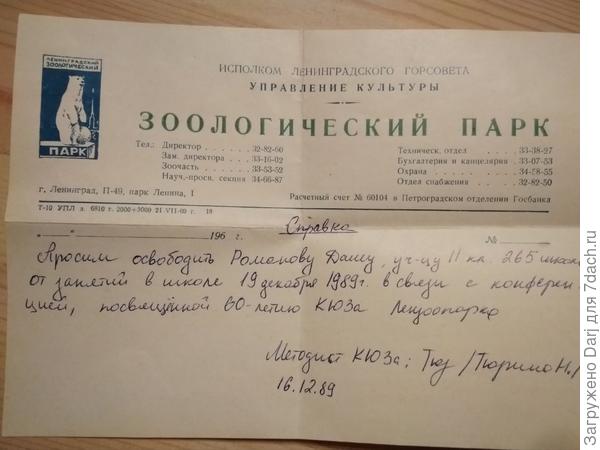 ЛЕНИНГРАДСКИЙ
ЗООЛОГИЧЕСКИЙ
ПАРК
ИСПОЛКОМ ЛЕНИНГРАДСКОГО ГОРСОВЕТА
УПРАВЛЕНИЕ КУЛЬТУРЫ
ЗООЛОГИЧЕСКИЙ ПАРК
Тел.: Директор 32-82-60
Зам. директора 33-16-02
Зоочасть 33-53-52
Науч.-просв. секция 34-66-87
Техническ. отдел 33-38-27
Бухгалтерия и канцелярия 33-07-53
Охрана 34-58-55
Отдел снабжения 32-82-50
г. Ленинград, П-49, парк Ленина, 1
Расчетный счет № 60104 в Петроградском отделении Госбанка
Т-10 УПЛ з. 6810 т. 2000+3000 21.VII-69 г. 18
„ " 196 г. Справка №
Просим освободить Романову Дашу, уч-цу 11 кл. 265 школы
от занятий в школе 19 декабря 1989г. в связи с конферен
цией, посвящённой 60-летию КЮЗа Лензоопарка
Методист КЮЗа: Тюз /Тюрина Н./
16.12.89
Загружено Darj для 7dach.ru